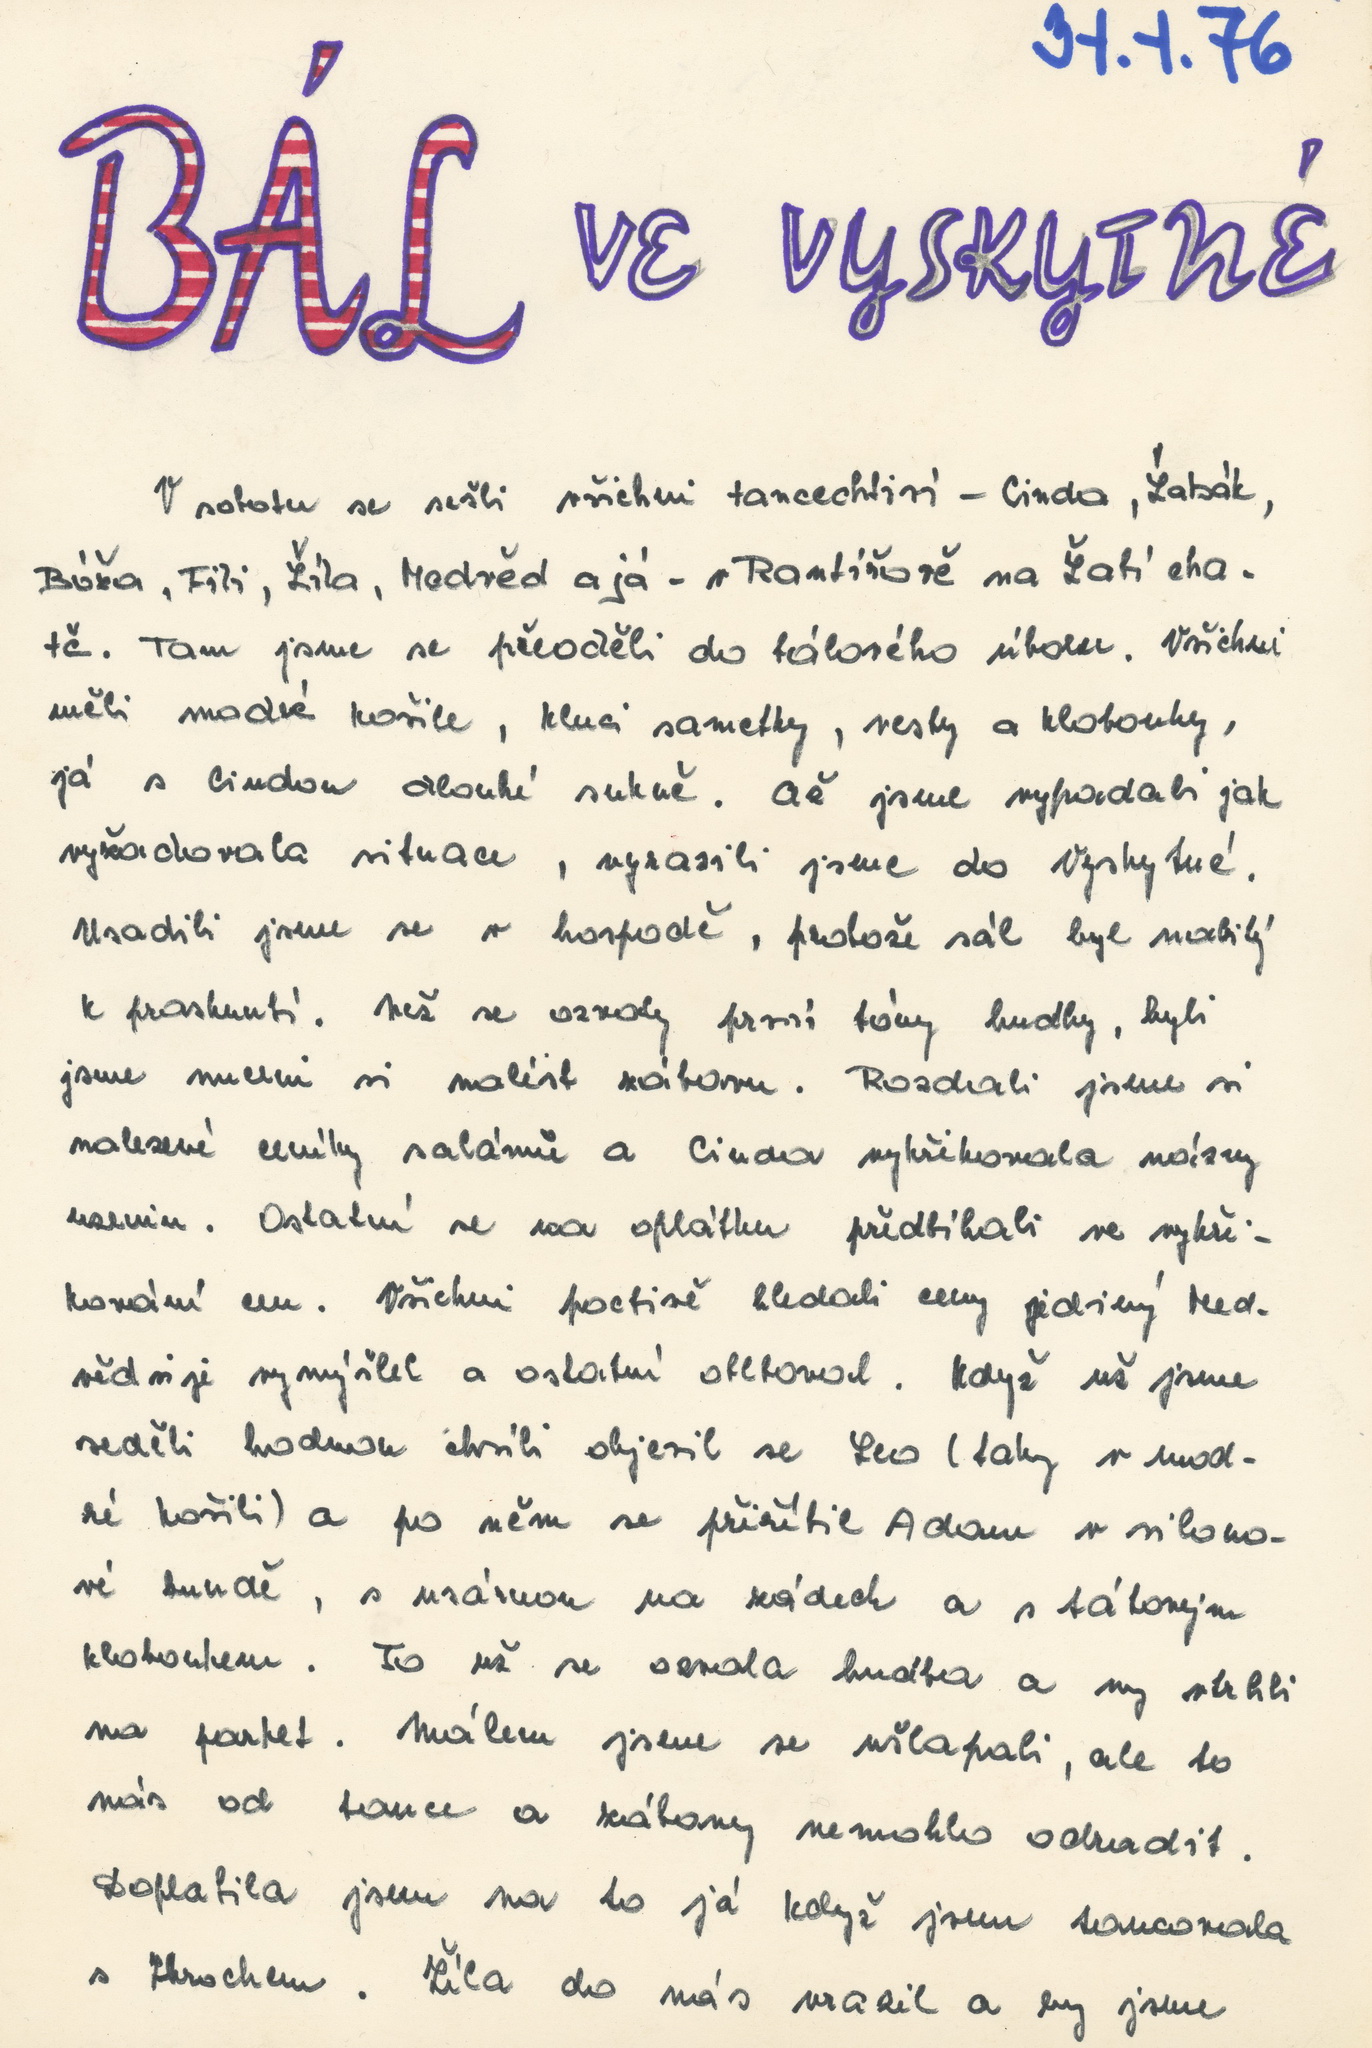 31.1.76
BÁL ve VYSKYTNÉ
V sobotu se sešli všichni tancechtiví – Cinda, Žabák,
Bóža, Fili, Žíla, Medvěd a já – v Rantířově na Žabí cha-
tě. Tam jsme se převoděli do bálového úboru. Všichni
měli modré košile, kluci sametky, vesty a klobouky,
já s Cindou dlouhé sukně. Až jsme vypadali jak
vyžadovala situace, vyrazili jsme do Vyskytné.
Usadili jsme se v hospodě, protože sál byl nabitý
k prasknutí. Než se ozvaly první tóny hudby, byli
jsme nuceni si nalézt zábavu. Rozdali jsme si
nalezené ceníky salámů a Cinda vykřikovala názvy
uzenin. Ostatní se na oplátku předbíhali ve vykři-
kování cen. Všichni poctivě hledali ceny jediný Med-
věd si je vymýšlel a ostatní oblboval. Když už jsme
seděli hodnou chvíli objevil se Leo (taky v mod-
ré košili) a po něm se přiřítil Adam v silono-
vé bundě, s uzárnou na zádech a s tátovejm
kloboukem. To už se ozvala hudba a my vtrhli
na parket. Málem jsme se ušlapali, ale to
nás od tance a zábavy nemohlo odradit.
Doplatila jsem na to já když jsem tancovala
s Hrochem. Žíla do nás vrazil a my jsme